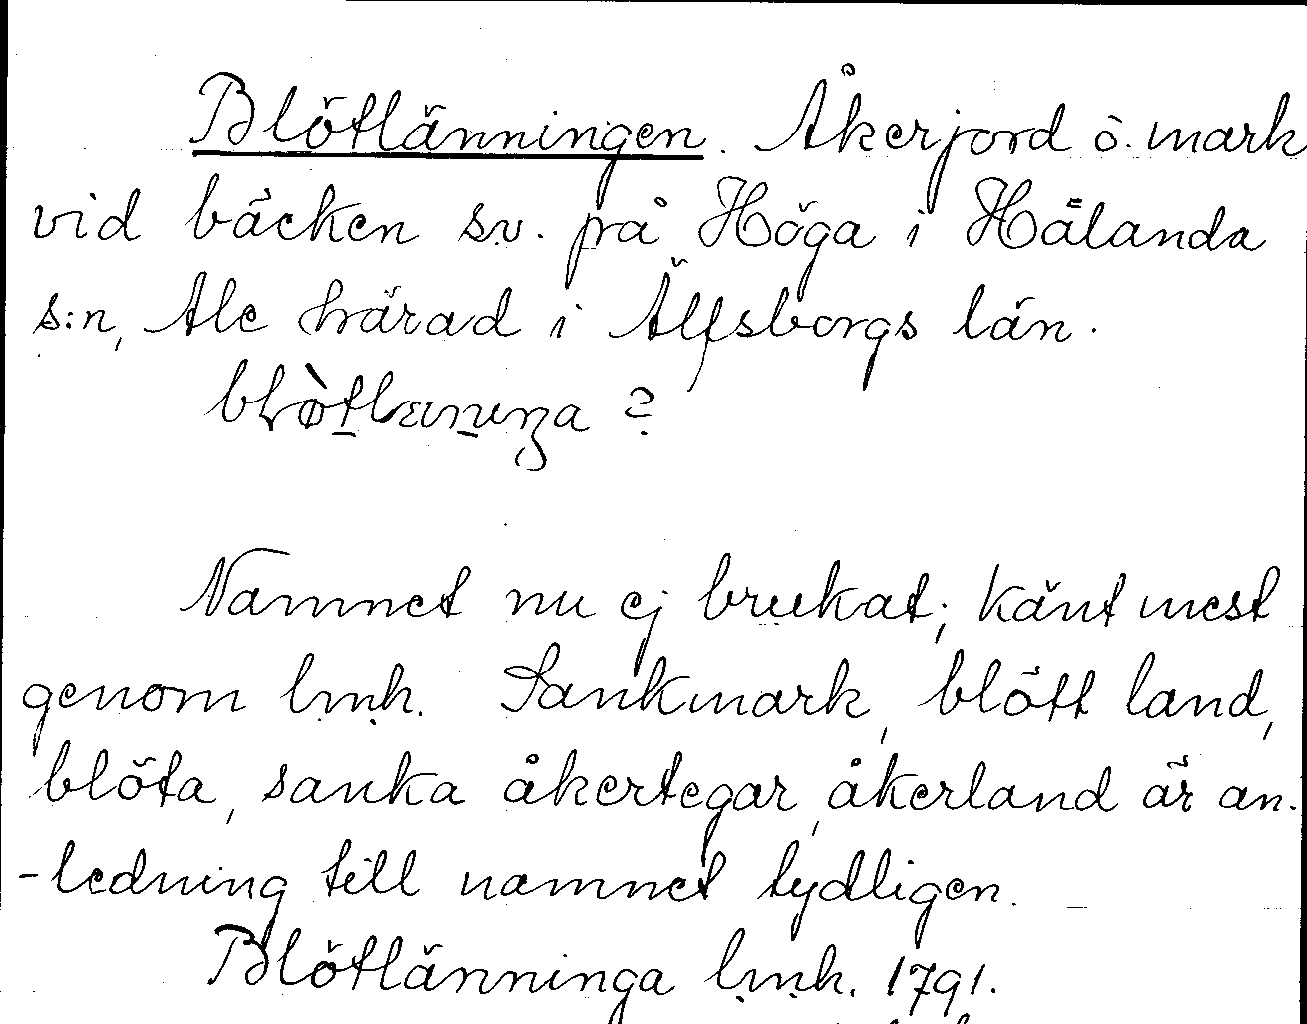 Blötlänningen. Åkerjord o. mark
vid bäcken sv. på Höga i Hålanda
s:n, Ale härad i Älfsborgs län.
?
Namnet nu ej brukat; känt mest
genom lmh. Sankmark, blött land,
blöta, sanka åkertegar, åkerland är an-
-ledning till namnet tydligen.
Blötlänninga lmh. 1791.